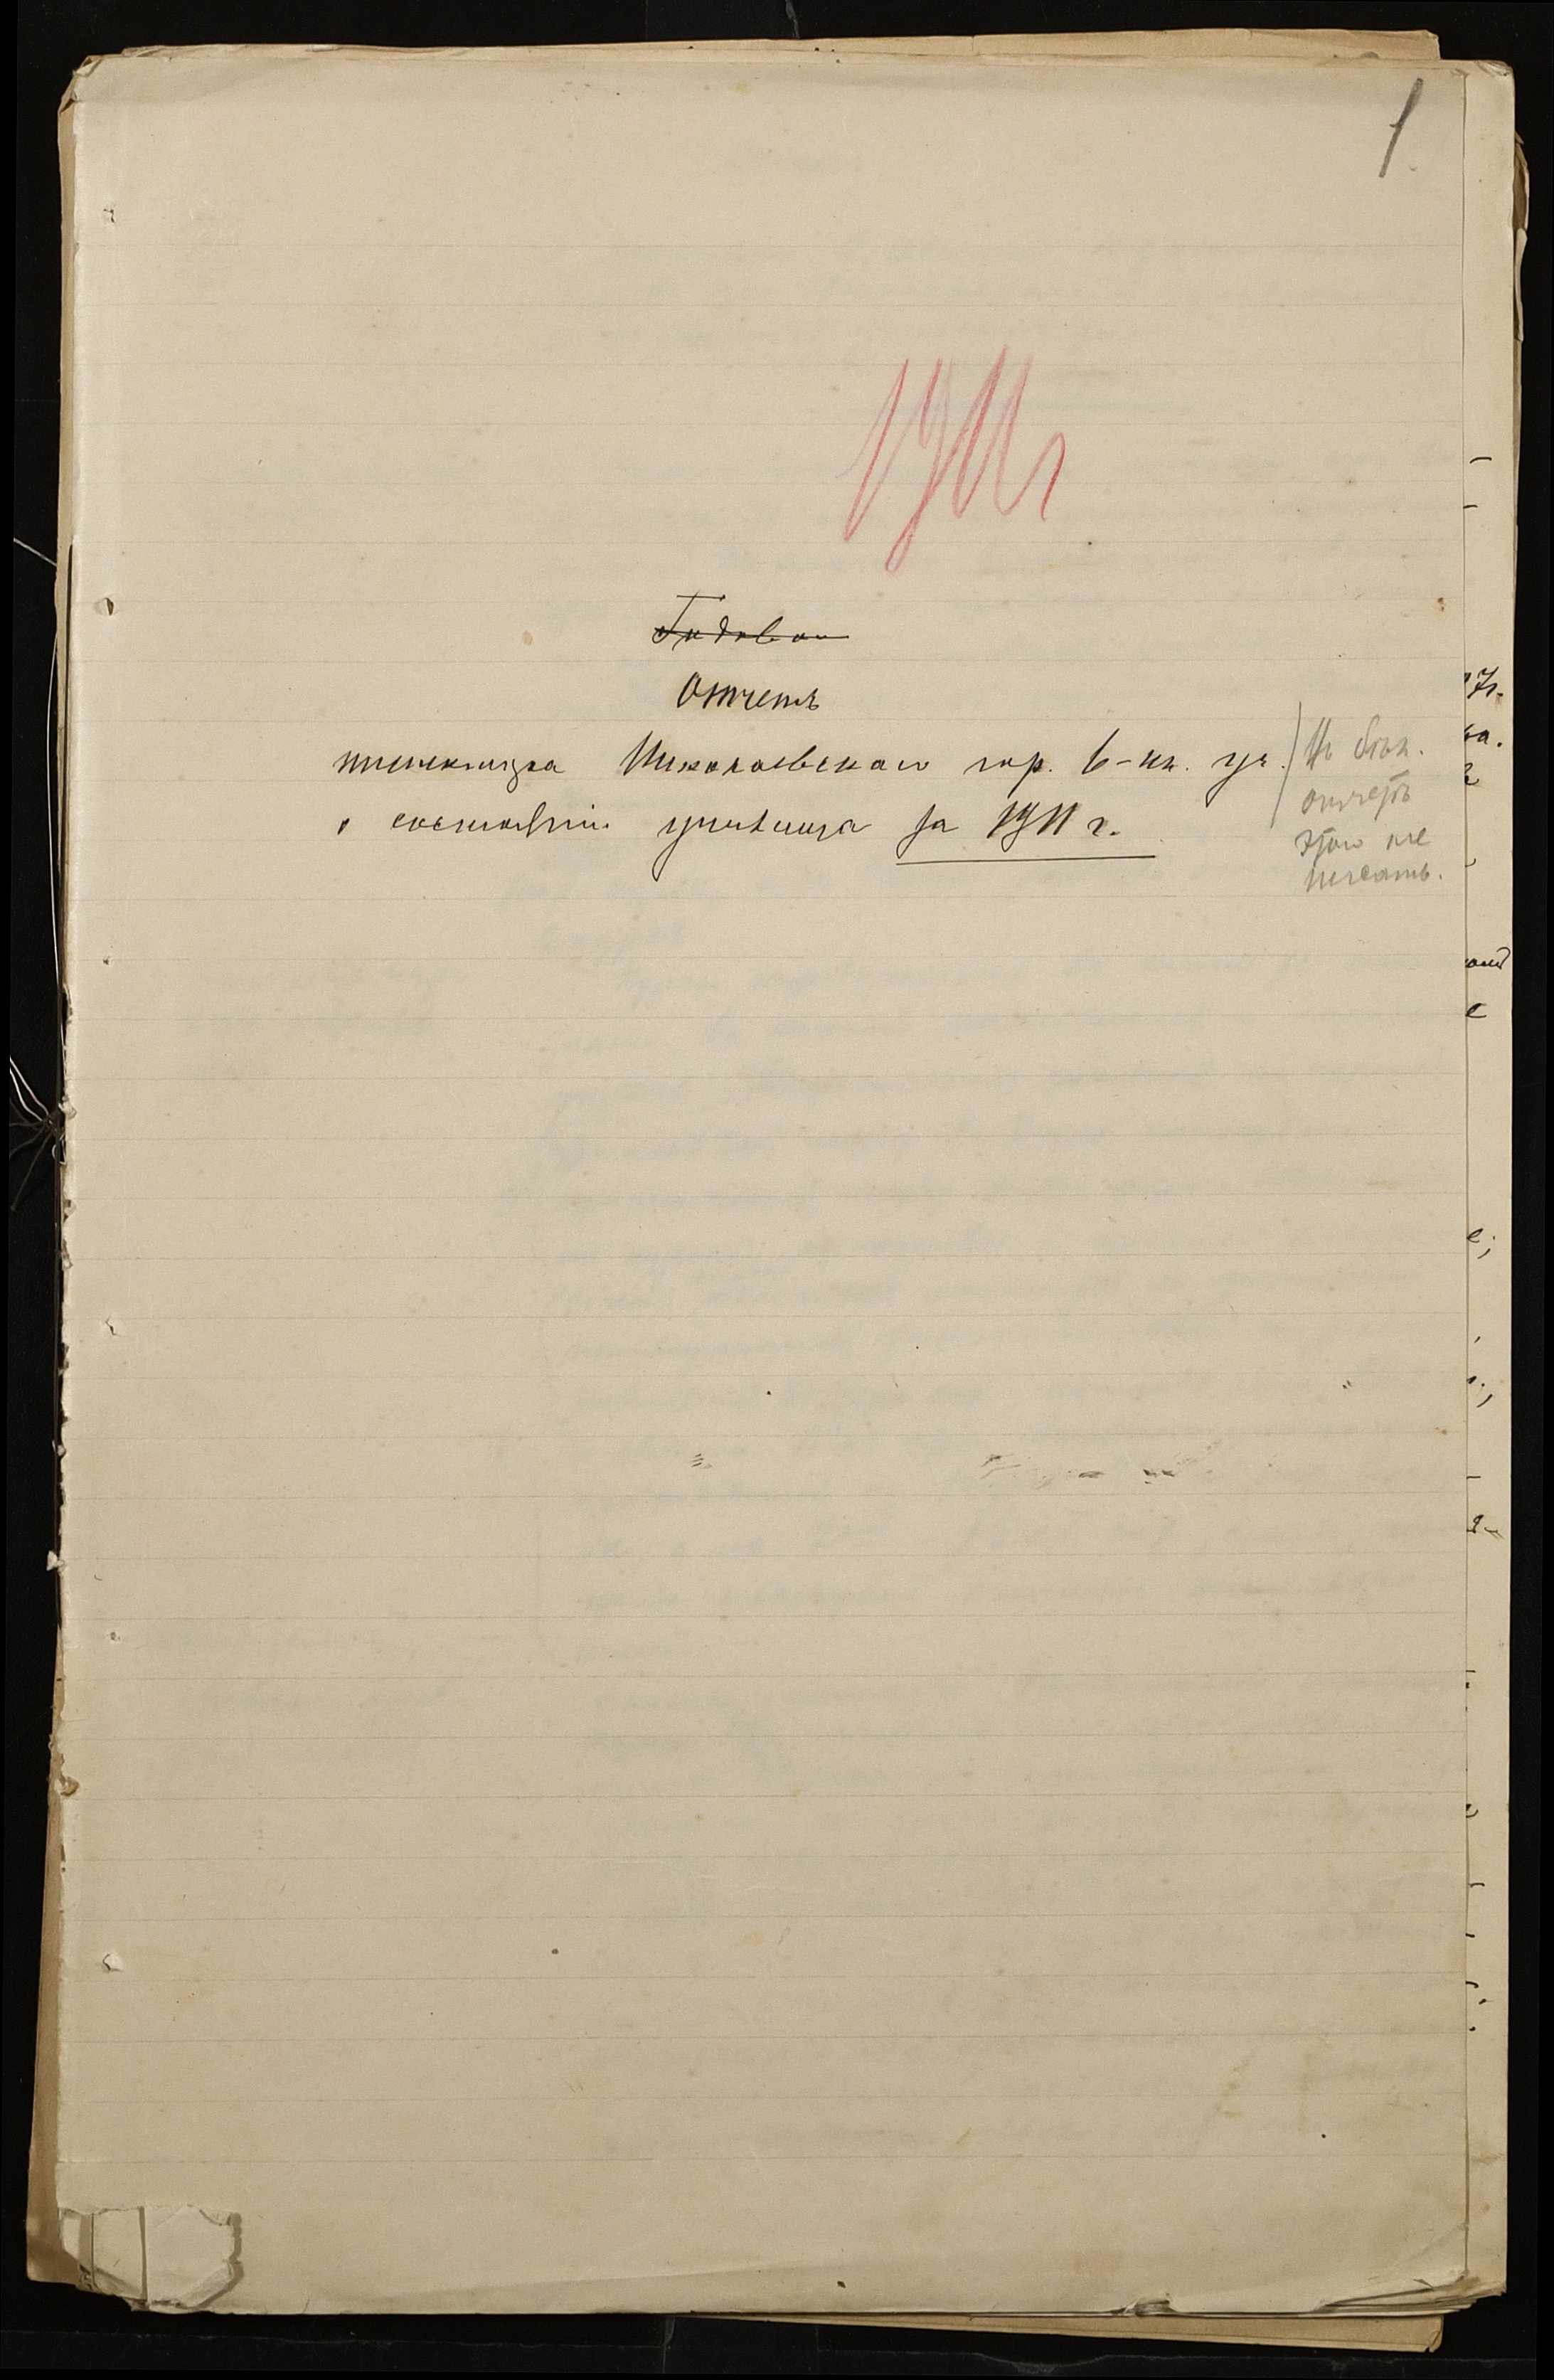 1
1911 г
Годовой
Отчетъ
инспектора Николаевскаго гор. 6-кл. уч.
о состояніи училища за 1911 г.
отчетъ
этого не
писать.